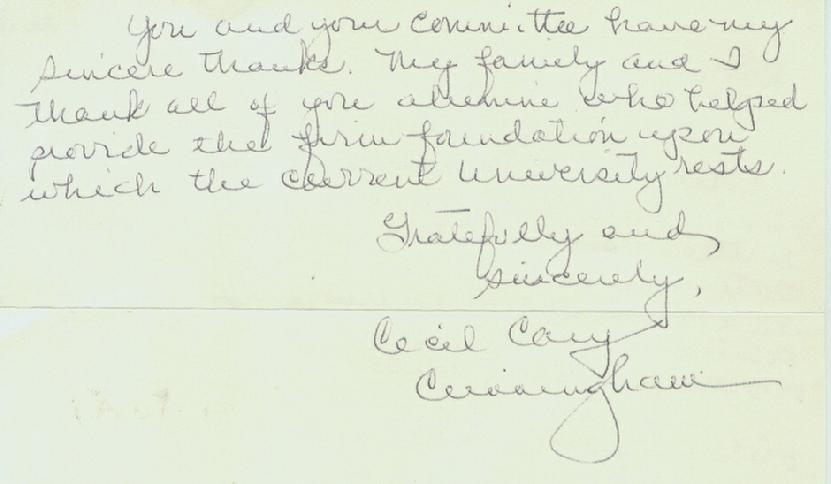 You and your committee have my
sincere thanks. My family and I
thank all of you alumni who helped
provide the firm foundation upon
which the current University rests.
Gratefully and
sincerely,
Cecil Cary
Cunningham